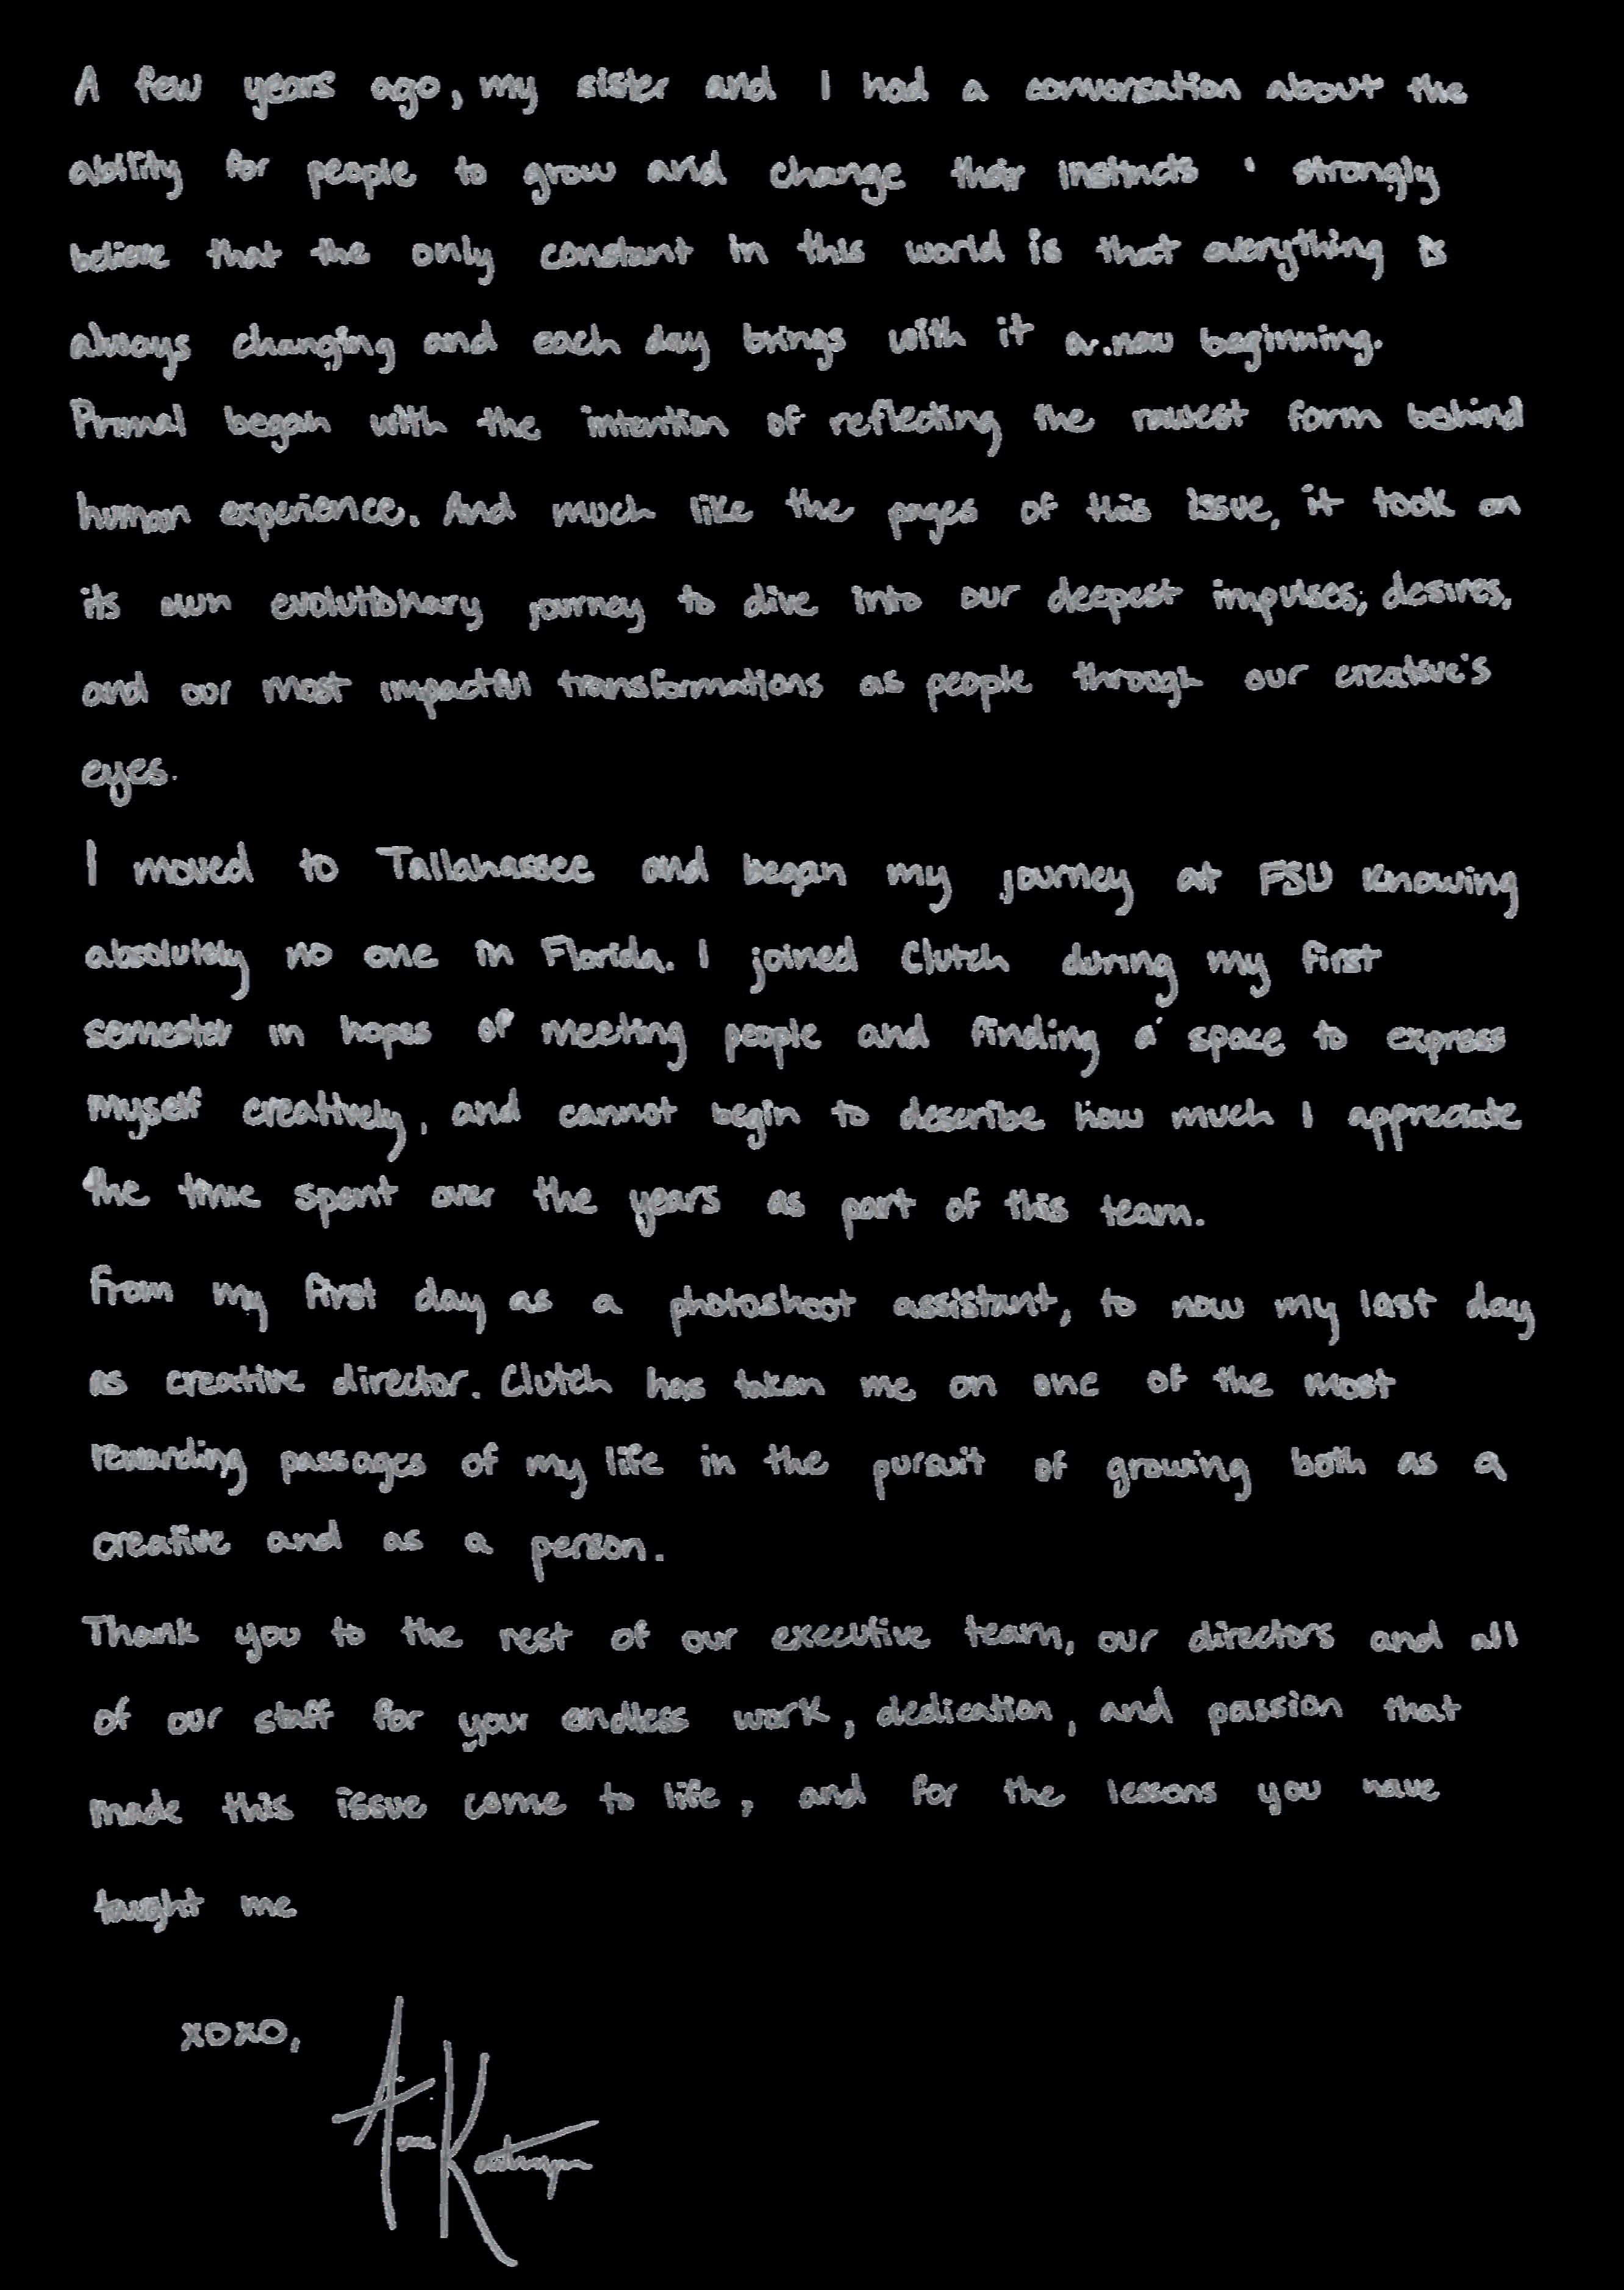 A few years ago, my sister and I had a conversation about the
ability for people to grow and change their instincts · strongly
believe that the only constant in this world is that everything is
always changing and each day brings with it a new beginning.
Primal began with the intention of reflecting the rawest form behind
human experience. And much like the pages of this issue, it took on
its own evolutionary journey to dive into our deepest impulses, desires,
and our most impactful transformations as people through our creative's
eyes.
I moved to Tallahassee and began my journey at FSU knowing
absolutely no one in Florida. I joined Clutch during my first
semester in hopes of meeting people and finding a space to express
myself creatively, and cannot begin to describe how much I appreciate
the time spent over the years as part of this team.
From my first day as a photoshoot assistant, to now my last day
as creative director. Clutch has taken me on one of the most
rewarding passages of my life in the pursuit of growing both as a
creative and as a person.
Thank you to the rest of our executive team, our directors and all
of our staff for your endless work, dedication, and passion that
made this issue come to life, and for the lessons you have
taught me
xoxo,